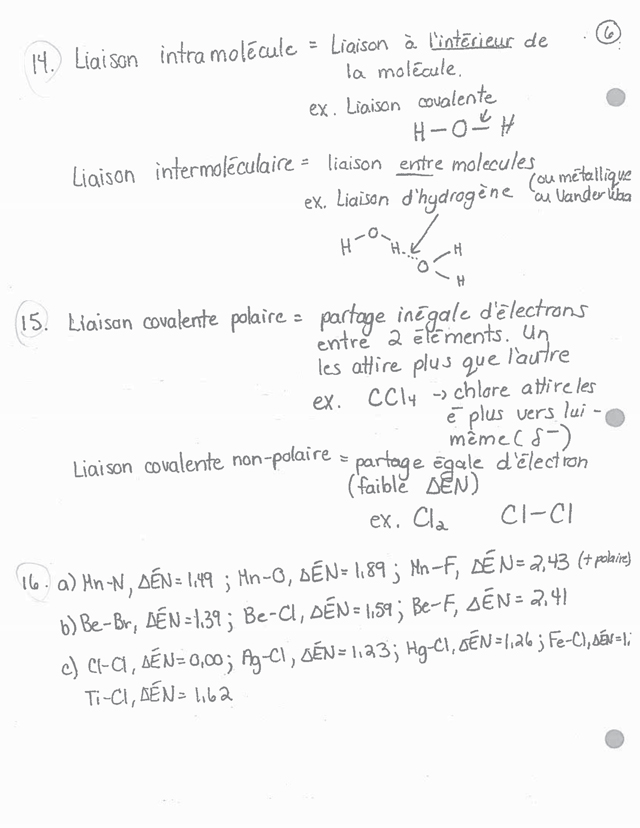 6
14. Liaison intramolécule = Liaison à l'intérieur de
la molécule.
ex. Liaison covalente
H-O-H
Liaison intermoléculaire = liaison entre molecules
(ou métallique
ex. Liaison d'hydrogène ou Vander Waa
H-O-H...O
H
H
15. Liaison covalente polaire = partage inégale d'électrons
entre 2 éléments. Un
les attire plus que l'autre
ex. CCl4 → chlore attire les
e⁻ plus vers lui-
même (δ⁻)
Liaison covalente non-polaire = partage égale d'électron
(faible ΔÉN)
ex. Cl2 Cl-Cl
16. a) Mn-N, ΔÉN=1,49 ; Mn-O, ΔÉN=1,89 ; Mn-F, ΔÉN=2,43 (+ polaire)
b) Be-Br, ΔÉN=1,39 ; Be-Cl, ΔÉN=1,59 ; Be-F, ΔÉN=2,41
c) Cl-Cl, ΔÉN=0,00 ; Ag-Cl, ΔÉN=1,23 ; Hg-Cl, ΔÉN=1,26 ; Fe-Cl, ΔÉN=1,
Ti-Cl, ΔÉN=1,62